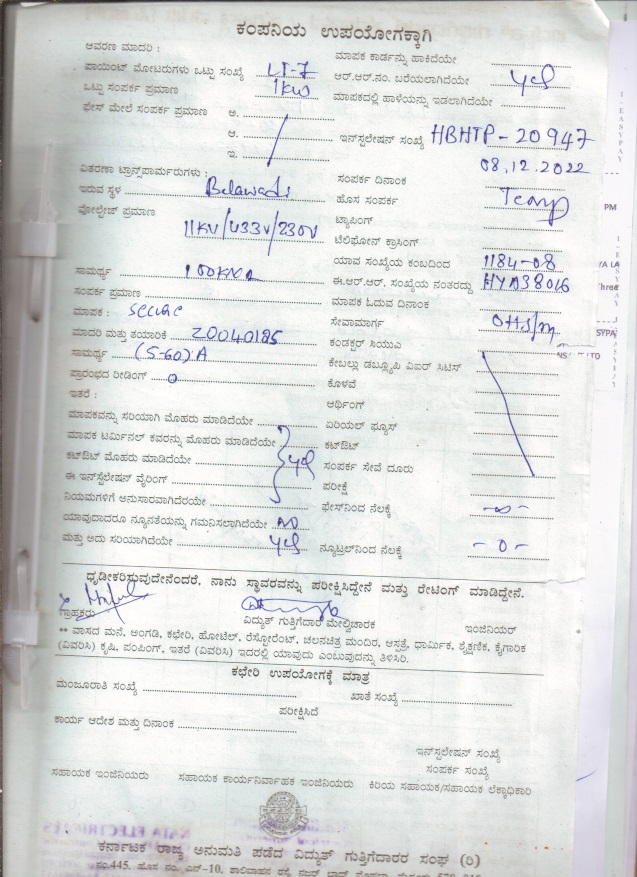 ಕಂಪನಿಯ ಉಪಯೋಗಕ್ಕಾಗಿ
ಆವರಣ ಮಾದರಿ :
ಮಾಪಕ ಕಾರ್ಡನ್ನು ಹಾಕಿದೆಯೇ
ಪಾಯಿಂಟ್ ಮೋಟರುಗಳು ಒಟ್ಟು ಸಂಖ್ಯೆ LT-7
ಆರ್.ಆರ್.ನಂ. ಬರೆಯಲಾಗಿದೆಯೇ yes
ಒಟ್ಟು ಸಂಪರ್ಕ ಪ್ರಮಾಣ 1KW
ಮಾಪಕದಲ್ಲಿ ಹಾಳೆಯನ್ನು ಇಡಲಾಗಿದೆಯೇ
ಫೇಸ್ ಮೇಲೆ ಸಂಪರ್ಕ ಪ್ರಮಾಣ ಅ.
ಆ.
ಇ.
ಇನ್‌ಸ್ಟಲೇಷನ್ ಸಂಖ್ಯೆ HBHTP-20947
08.12.2022
ವಿತರಣಾ ಟ್ರಾನ್ಸ್‌ಪಾರ್ಮರುಗಳು :
ಸಂಪರ್ಕ ದಿನಾಂಕ
ಇರುವ ಸ್ಥಳ Belawadi
ಹೊಸ ಸಂಪರ್ಕ
ವೋಲ್ಟೇಜ್ ಪ್ರಮಾಣ 11KV/433V/230V
ಟ್ಯಾಪಿಂಗ್
ಟೆಲಿಫೋನ್ ಕ್ರಾಸಿಂಗ್
ಯಾವ ಸಂಖ್ಯೆಯ ಕಂಬದಿಂದ 1184-08
ಸಾಮರ್ಥ್ಯ 100KVA
ಈ.ಆರ್.ಆರ್. ಸಂಖ್ಯೆಯ ನಂತರದ್ದು HYD38016
ಸಂಪರ್ಕ ಪ್ರಮಾಣ
ಮಾಪಕ ಓದುವ ದಿನಾಂಕ
ಮಾಪಕ : secure
ಸೇವಾಮಾರ್ಗ OHS/m
ಮಾದರಿ ಮತ್ತು ತಯಾರಿಕೆ 20040185
ಕಂಡಕ್ಟರ್ ಸಿಯುವಿ
ಸಾಮರ್ಥ್ಯ (5-60)A
ಕೇಬಲ್ಲು ಡಬ್ಲ್ಯೂಪಿ ವಿಐರ್ ಸಿಟಿಸ್
ಪ್ರಾರಂಭದ ರೀಡಿಂಗ್ 0
ಕೊಳವೆ
ಇತರೆ :
ಆರ್ಥಿಂಗ್
ಮಾಪಕವನ್ನು ಸರಿಯಾಗಿ ಮೊಹರು ಮಾಡಿದೆಯೇ
ಏರಿಯಲ್ ಫ್ಯೂಸ್
ಮಾಪಕ ಟರ್ಮಿನಲ್ ಕವರನ್ನು ಮೊಹರು ಮಾಡಿದೆಯೇ
ಕಟ್‌ಔಟ್
ಕಟ್‌ಔಟ್ ಮೊಹರು ಮಾಡಿದೆಯೇ yes
ಸಂಪರ್ಕ ಸೇವೆ ದೂರು
ಈ ಇನ್‌ಸ್ಟಲೇಷನ್ ವೈರಿಂಗ್
ಪರೀಕ್ಷೆ
ನಿಯಮಗಳಿಗೆ ಅನುಸಾರವಾಗಿದೆರಯೇ
ಫೇಸ್‌ನಿಂದ ನೆಲಕ್ಕೆ -∞-
ಯಾವುದಾದರೂ ನ್ಯೂನತೆಯನ್ನು ಗಮನಿಸಲಾಗಿದೆಯೇ NO
ಮತ್ತು ಅದು ಸರಿಯಾಗಿದೆಯೇ yes
ನ್ಯೂಟ್ರಲ್‌ನಿಂದ ನೆಲಕ್ಕೆ -0-
ಧೃಡೀಕರಿಸುವುದೇನೆಂದರೆ, ನಾನು ಸ್ಥಾವರವನ್ನು ಪರೀಕ್ಷಿಸಿದ್ದೇನೆ ಮತ್ತು ರೇಟಿಂಗ್ ಮಾಡಿದ್ದೇನೆ.
ಗ್ರಾಹಕರು
ವಿದ್ಯುತ್ ಗುತ್ತಿಗೆದಾರ ಮೇಲ್ವಿಚಾರಕ
ಇಂಜಿನಿಯರ್
** ವಾಸದ ಮನೆ, ಅಂಗಡಿ, ಕಛೇರಿ, ಹೋಟೆಲ್, ರೆಸ್ಟೋರೆಂಟ್, ಚಲನಚಿತ್ರ ಮಂದಿರ, ಆಸ್ಪತ್ರೆ, ಧಾರ್ಮಿಕ, ಶೈಕ್ಷಣಿಕ, ಕೈಗಾರಿಕ
(ವಿವರಿಸಿ) ಕೃಷಿ, ಪಂಪಿಂಗ್, ಇತರೆ (ವಿವರಿಸಿ) ಇದರಲ್ಲಿ ಯಾವುದು ಎಂಬುವುದನ್ನು ತಿಳಿಸಿರಿ.
ಕಛೇರಿ ಉಪಯೋಗಕ್ಕೆ ಮಾತ್ರ
ಮಂಜೂರಾತಿ ಸಂಖ್ಯೆ
ಖಾತೆ ಸಂಖ್ಯೆ
ಪರೀಕ್ಷಿಸಿದೆ
ಕಾರ್ಯ ಆದೇಶ ಮತ್ತು ದಿನಾಂಕ
ಇನ್‌ಸ್ಟಲೇಷನ್ ಸಂಖ್ಯೆ
ಸಂಪರ್ಕ ಸಂಖ್ಯೆ
ಸಹಾಯಕ ಇಂಜಿನಿಯರು ಸಹಾಯಕ ಕಾರ್ಯನಿರ್ವಾಹಕ ಇಂಜಿನಿಯರು ಕಿರಿಯ ಸಹಾಯಕ/ಸಹಾಯಕ ಲೆಕ್ಕಾಧಿಕಾರಿ
ಕರ್ನಾಟಕ ರಾಜ್ಯ ಅನುಮತಿ ಪಡೆದ ವಿದ್ಯುತ್ ಗುತ್ತಿಗೆದಾರರ ಸಂಘ (ರಿ)
ನಂ.445, ಹೊಸ ನಂ. ಎಲ್-10, ಶಾಲಿವಾಹನ ರಸ್ತೆ
EASYPAY
PM